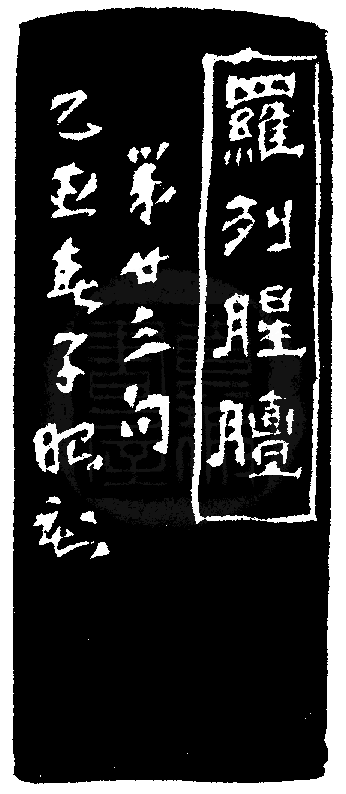 羅列腥膻
第廿三句
乙丑春子昭